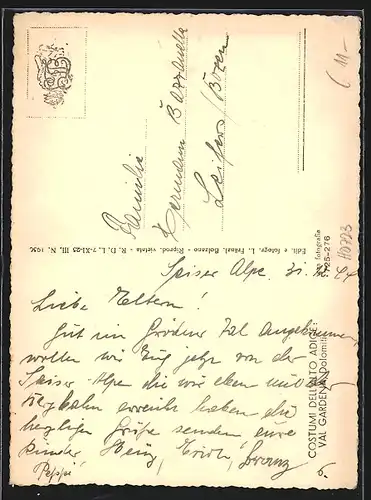 Familie
Hermann Bazzanella
Leifers / Bozen
Edit. e fotogr. L. Fränzl, Bolzano - Riprod. vietata - R. D. L. 7-XI-25 III, N. 1950
COSTUMI DELL'ALTO ADIGE:
VAL GARDENA Dolomiti
fotografia
5725-276
110793
11-
Seiser Alpe. 31. 44
Liebe Eltern!
Gut im Grödner Tal angekommen,
wollen wir Euch jetzt von der
Seiser-Alpen die wir eben mit der
Bergbahn erreicht haben die
herzlichen Grüße senden, eure
Kinder Heinz, Erich, Franz
Peppi